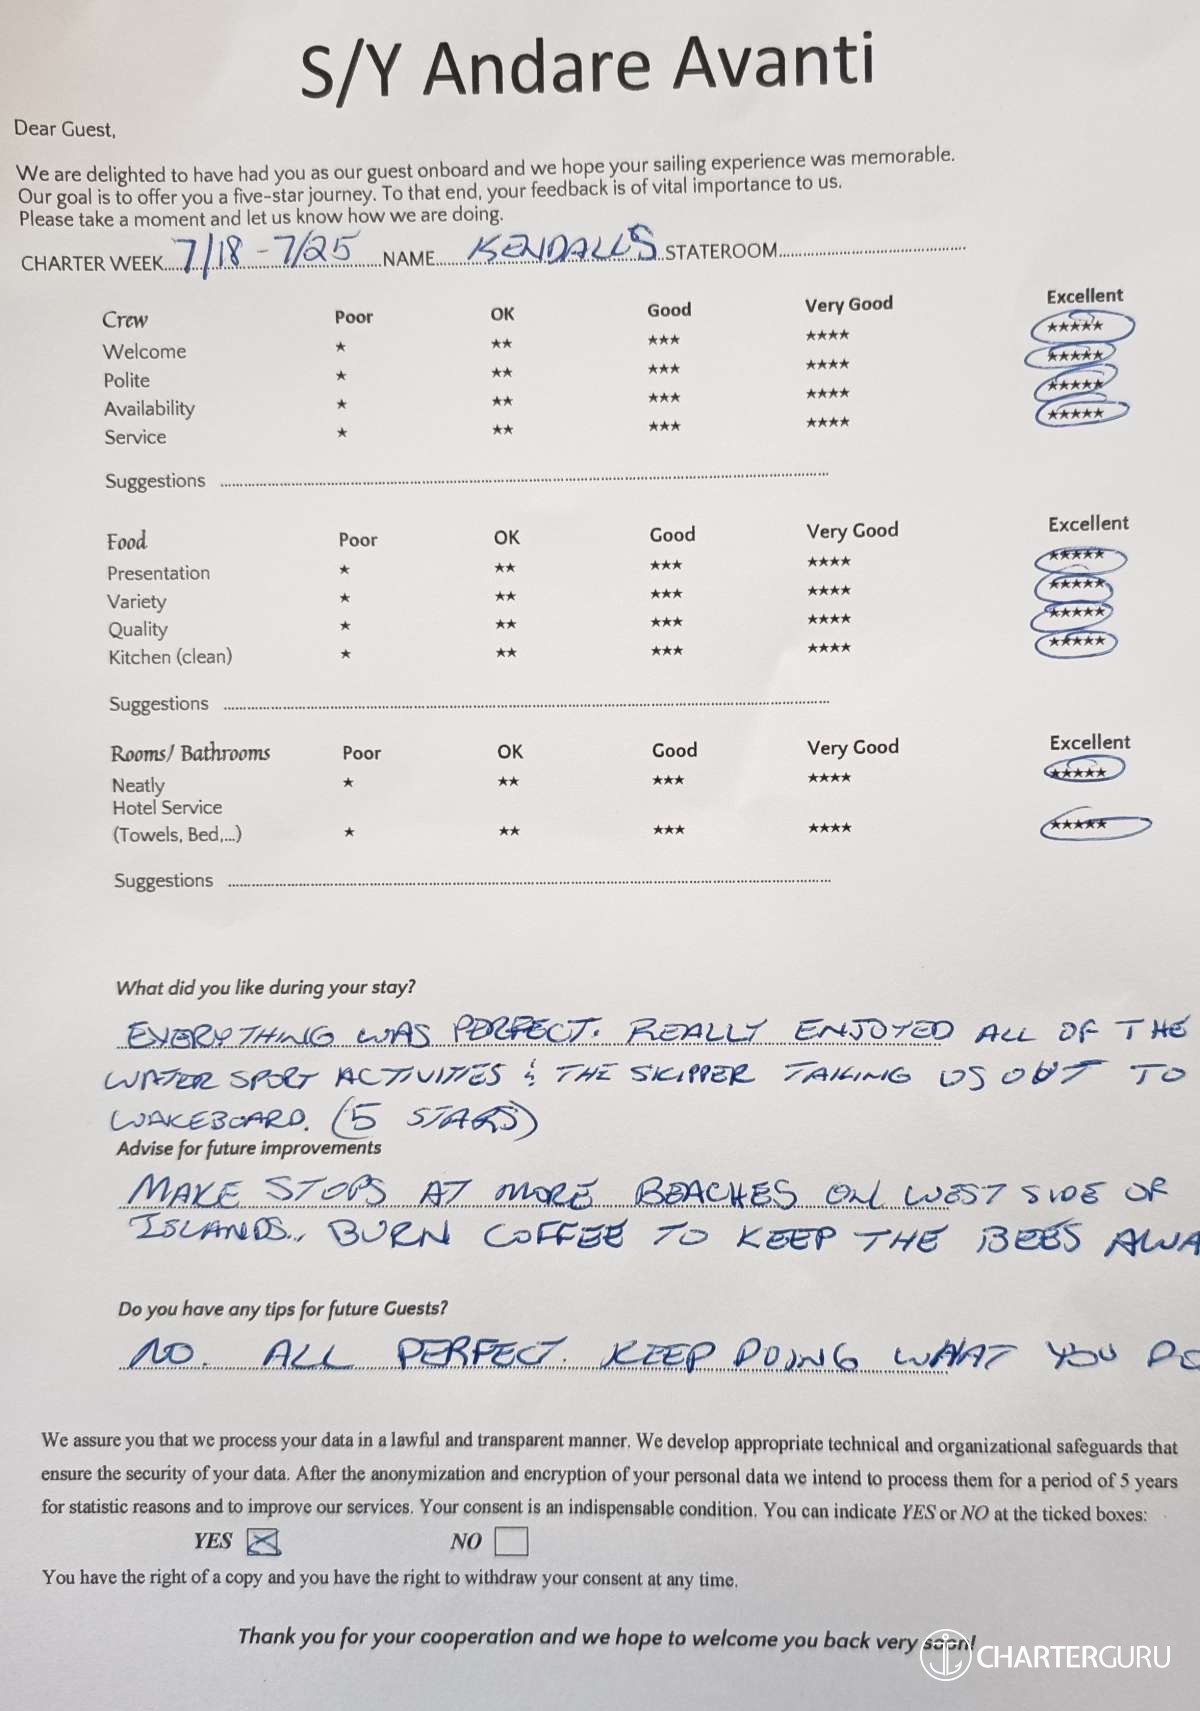 S/Y Andare Avanti
Dear Guest,
We are delighted to have had you as our guest onboard and we hope your sailing experience was memorable.
Our goal is to offer you a five-star journey. To that end, your feedback is of vital importance to us.
Please take a moment and let us know how we are doing.
CHARTER WEEK 7/18 - 7/25 NAME KENDALL'S STATEROOM
Crew Poor OK Good Very Good Excellent
Welcome ★ ★★ ★★★ ★★★★ ★★★★★
Polite ★ ★★ ★★★ ★★★★ ★★★★★
Availability ★ ★★ ★★★ ★★★★ ★★★★★
Service ★ ★★ ★★★ ★★★★ ★★★★★
Suggestions
Food Poor OK Good Very Good Excellent
Presentation ★ ★★ ★★★ ★★★★ ★★★★★
Variety ★ ★★ ★★★ ★★★★ ★★★★★
Quality ★ ★★ ★★★ ★★★★ ★★★★★
Kitchen (clean) ★ ★★ ★★★ ★★★★ ★★★★★
Suggestions
Rooms/ Bathrooms Poor OK Good Very Good Excellent
Neatly ★ ★★ ★★★ ★★★★ ★★★★★
Hotel Service
(Towels, Bed,...) ★ ★★ ★★★ ★★★★ ★★★★★
Suggestions
What did you like during your stay?
EVERYTHING WAS PERFECT. REALLY ENJOYED ALL OF THE
WATER SPORT ACTIVITIES & THE SKIPPER TAKING US OUT TO
WAKEBOARD. (5 STARS)
Advise for future improvements
MAKE STOPS AT MORE BEACHES ON WEST SIDE OF
ISLANDS., BURN COFFEE TO KEEP THE BEES AWA
Do you have any tips for future Guests?
NO. ALL PERFECT. KEEP DOING WHAT YOU DO
We assure you that we process your data in a lawful and transparent manner. We develop appropriate technical and organizational safeguards that
ensure the security of your data. After the anonymization and encryption of your personal data we intend to process them for a period of 5 years
for statistic reasons and to improve our services. Your consent is an indispensable condition. You can indicate YES or NO at the ticked boxes:
YES NO
You have the right of a copy and you have the right to withdraw your consent at any time.
Thank you for your cooperation and we hope to welcome you back very soon!
CHARTERGURU